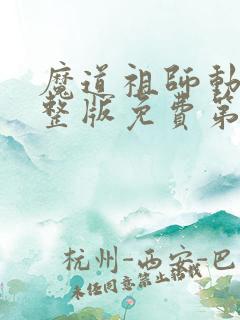 魔道祖師動
整版免費第
杭州-西安-巴
未经同意禁止搭线